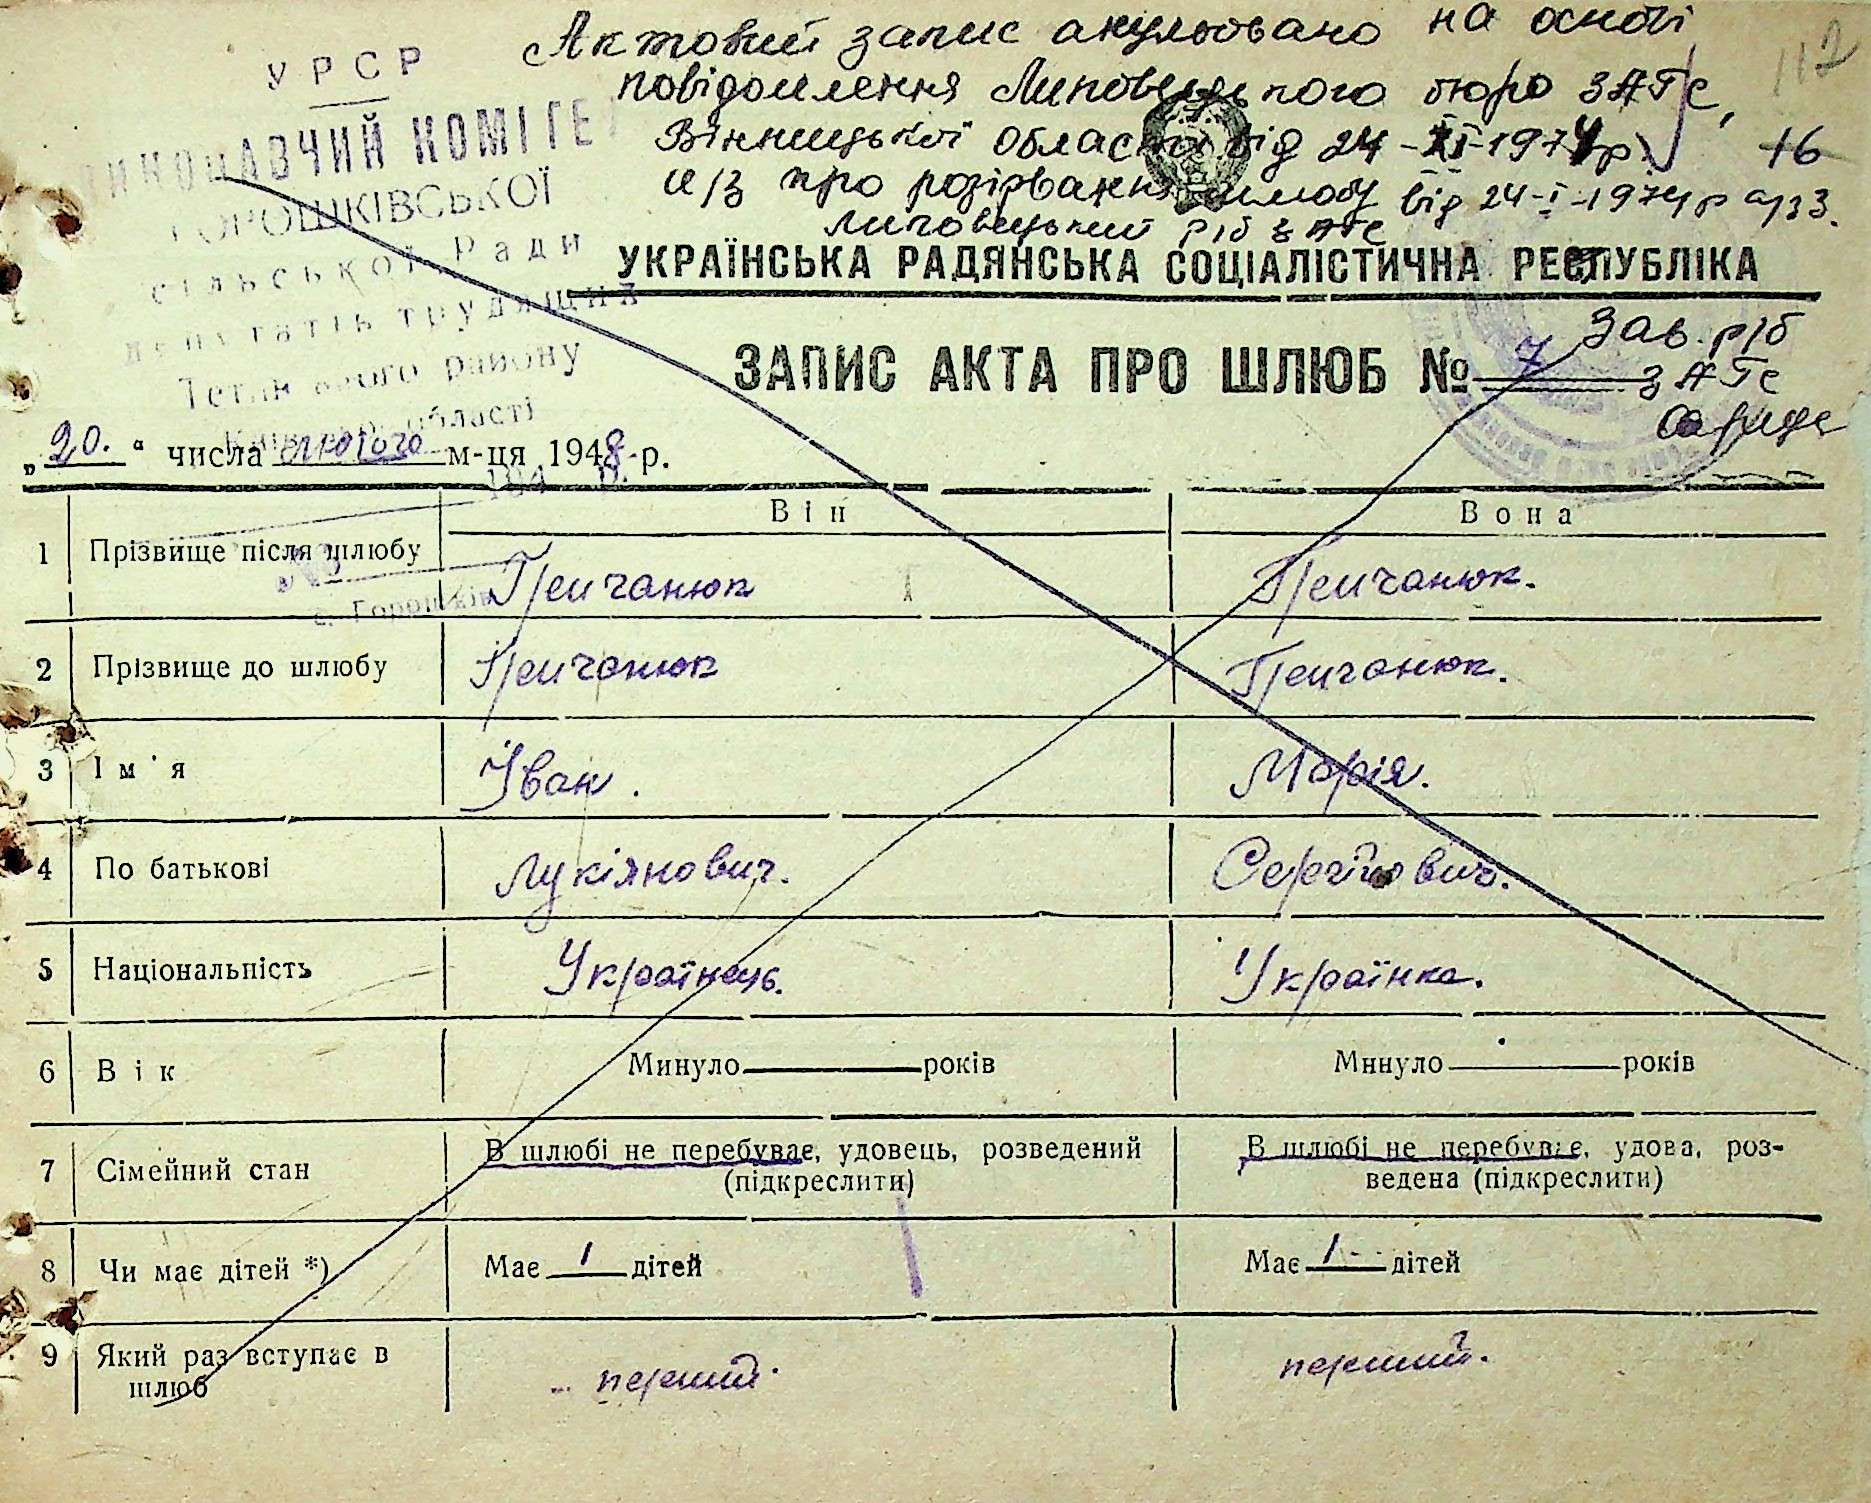 Актовий запис анульовано на основі
повідомлення Липовецького бюро ЗАГС,
Вінницької області від 24-XI-1974 р
а/з про розірвання шлюбу від 24-I-1974 р а/з 3.
Липовецький р/б ЗАГС
112
16
УРСР
ВИКОНАВЧИЙ КОМІТЕТ
ГОРОШКІВСЬКОЇ
сільської Ради
депутатів трудящих
Тетіївського району
Київської області
194 р.
№
с. Горошків
УКРАЇНСЬКА РАДЯНСЬКА СОЦІАЛІСТИЧНА РЕСПУБЛІКА
Зав. р/б
ЗАГС
ЗАПИС АКТА ПРО ШЛЮБ № 7
„20." числа лютого м-ця 1948 р.
Він Вона
1 Прізвище після шлюбу Гречанюк Гречанюк.
2 Прізвище до шлюбу Гречанюк Гречанюк.
3 Ім'я Іван. Марія.
4 По батькові Лукіянович. Сергійович.
5 Національність Українець. Українка.
6 Вік Минуло років Минуло років
7 Сімейний стан В шлюбі не перебуває, удовець, розведений В шлюбі не перебуває, удова, роз-
(підкреслити) ведена (підкреслити)
8 Чи має дітей *) Має 1 дітей Має 1 - дітей
9 Який раз вступає в перший. перший.
шлюб